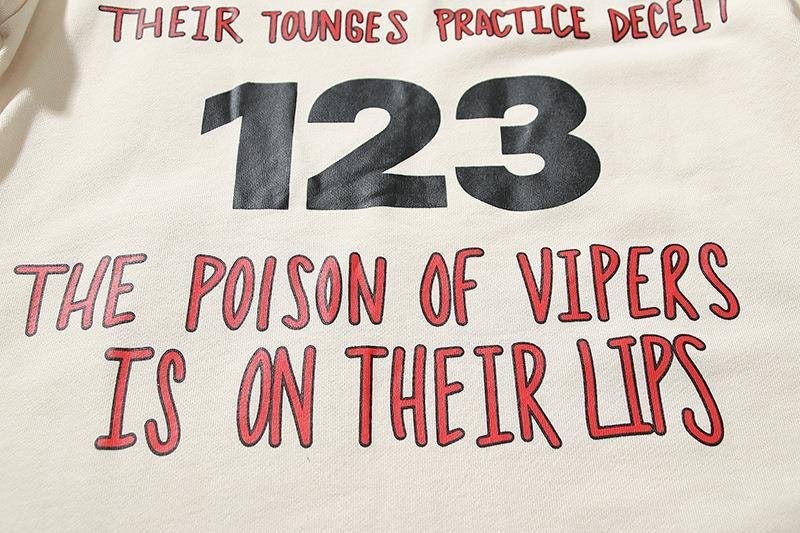 THEIR TOUNGES PRACTICE DECEIT
123
THE POISON OF VIPERS
IS ON THEIR LIPS